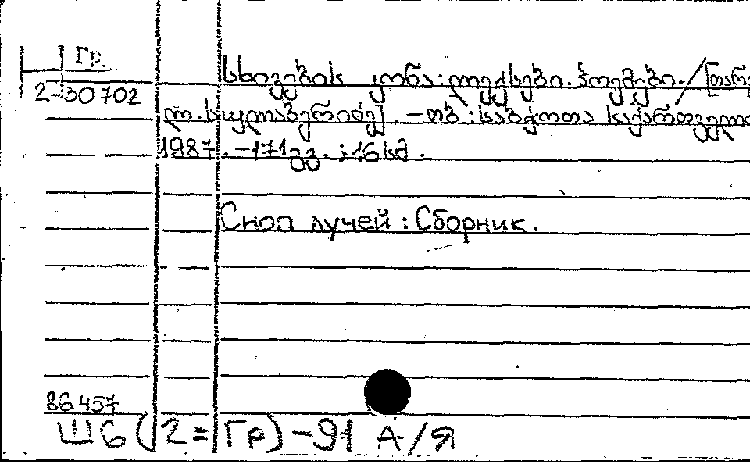 Гр.
2-30702
სხივების კონა : ლექსები. პოემები. / [თარგ
ლ. სულაბერიძე]. – თბ : საბჭოთა საქართველო
1987. – 171 გვ. ; 16 სმ.
Сноп лучей : Сборник.
86457
Ш6(2=Гр)-91 А/Я